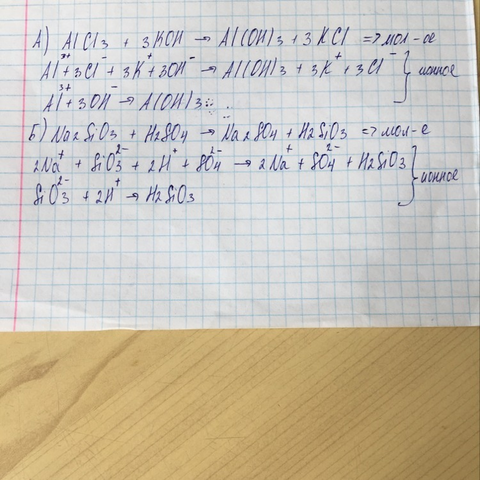 А) AlCl3 + 3KOH → Al(OH)3 + 3KCl => мол-ое
Al³⁺ + 3Cl⁻ + 3K⁺ + 3OH⁻ → Al(OH)3 + 3K⁺ + 3Cl⁻ } ионное
Al³⁺ + 3OH⁻ → Al(OH)3
Б) Na2SiO3 + H2SO4 → Na2SO4 + H2SiO3 => мол-е
2Na⁺ + SiO3²⁻ + 2H⁺ + SO4²⁻ → 2Na⁺ + SO4²⁻ + H2SiO3 } ионное
SiO3²⁻ + 2H⁺ → H2SiO3